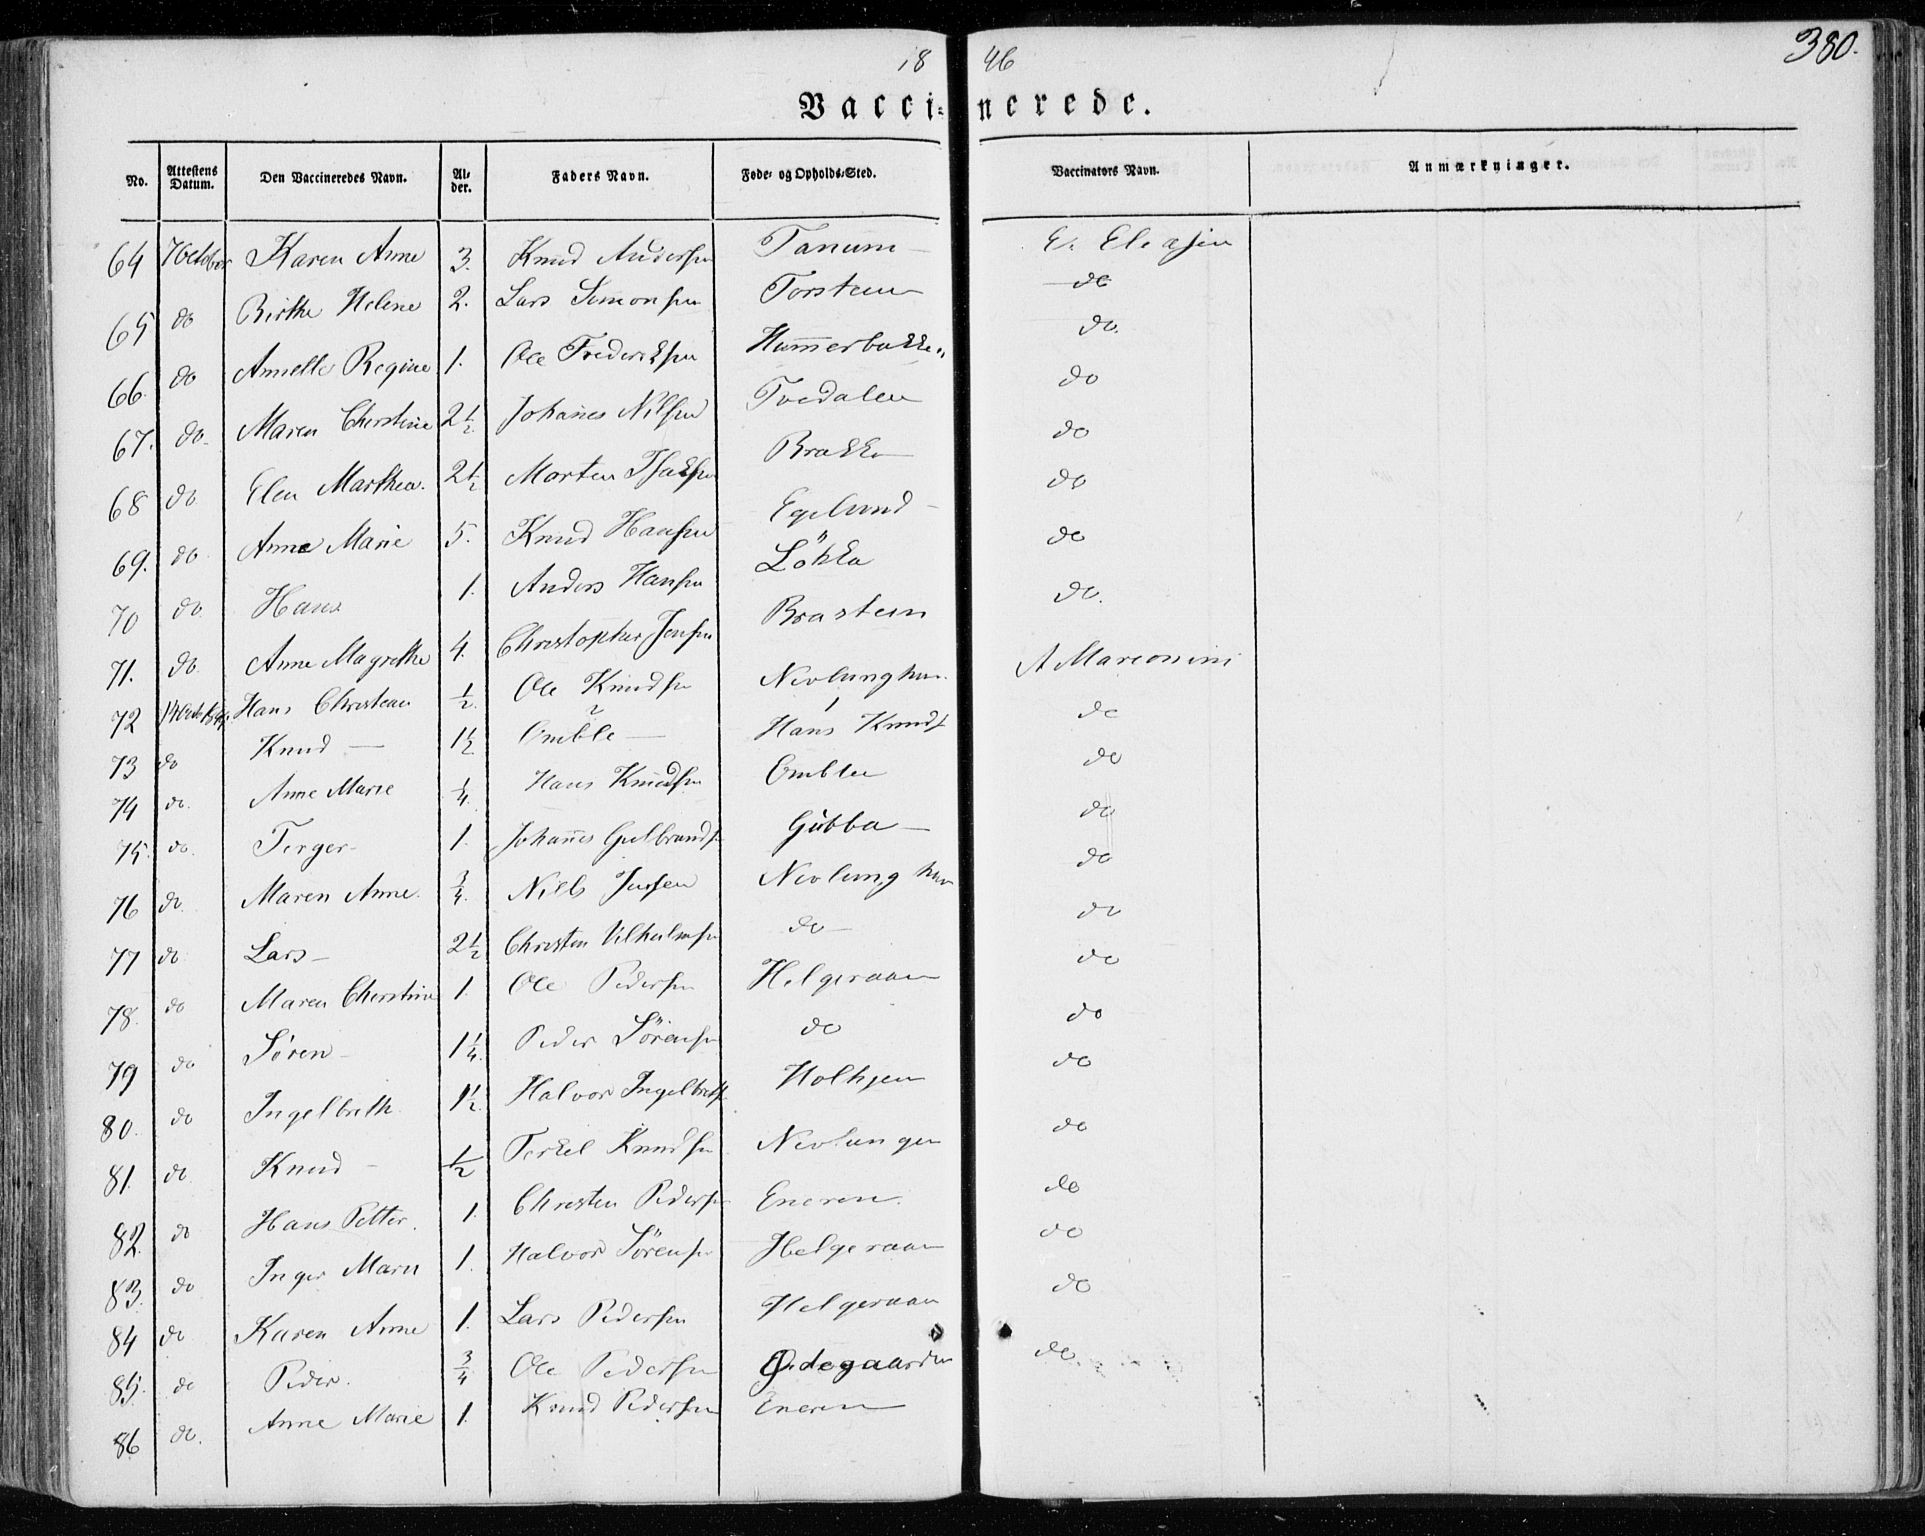 18 46
380.
Vacci-nerede.
No. Attestens Datum. Den Vaccineredes Navn. Al-der. Faders Navn. Føde- og Opholds-Sted. Vaccinators Navn. Anmærkninger.
64 7 October Karen Anne 3. Knud Andersen Tanum E. Eliasen
65 do Birthe Helene 2. Lars Simonsen Torstein do
66. do Annette Regine 1. Ole Frederiksen Hummerbakken do.
67. do. Maren Cherstine 2½ Johanes Nilsen Tvedalen do
68 do Elen Marthea. 2½ Morten Isaksen Brakke do
69. do Anne Marie 5. Knud Hansen Egelund do
70 do. Hans 1. Anders Hansen Løkka do
71. do. Anne Magrethe 4. Christopher Jensen Brastein do.
72 14 Hans Christian ½ Ole Knudsen Nevlunghavn A Marconini
73 do Knud 1½ Omble Hans Knuds do
74 do. Anne Marie ¼ Hans Knudsen Omble do
75. do. Terger 1. Johanes Gulbrands Gubba do
76 do. Maren Anne. ¾ Nils Jensen Nevlung havn do
77 do Lars 2½ Christen Vilhelmsen do do
78. do Maren Cherstine 1. Ole Pedersen Helgeraaen do
79 do Søren 1¼ Peder Sørensen do do
80. do Ingelbreth. 1½ Halvor Ingelbreths Holhjem do
81. do. Knud ½ Terkel Knudsen Nevlungen do
82. do Hans Petter. 1. Christen Pedersen Eneren. do
83. do Inger Maren 1. Halvor Sørensen Helgeraaen do
84 do Karen Anne 1. Lars Pedersen Helgeraaen do
85. do Peder. ¾ Ole Pedersen Ødegaarden do.
86 do. Anne Marie 1. Knud Pedersen Eneren